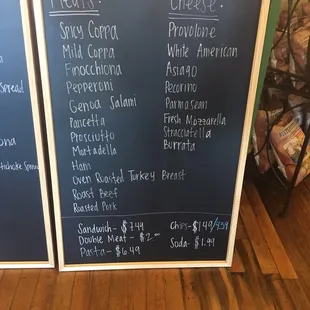 Meats:
Spicy Coppa
Mild Coppa
Finocchiona
Pepperoni
Genoa Salami
Pancetta
Prosciutto
Mortadella
Ham
Oven Roasted Turkey Breast
Roast Beef
Roasted Pork
Cheese:
Provolone
White American
Asiago
Pecorino
Parmasean
Fresh Mozzarella
Stracciatella
Burrata
Sandwich- $7.49
Double Meat - $2.00
Pasta - $6.49
Chips- $1.49/4.59
Soda- $1.99
Spread